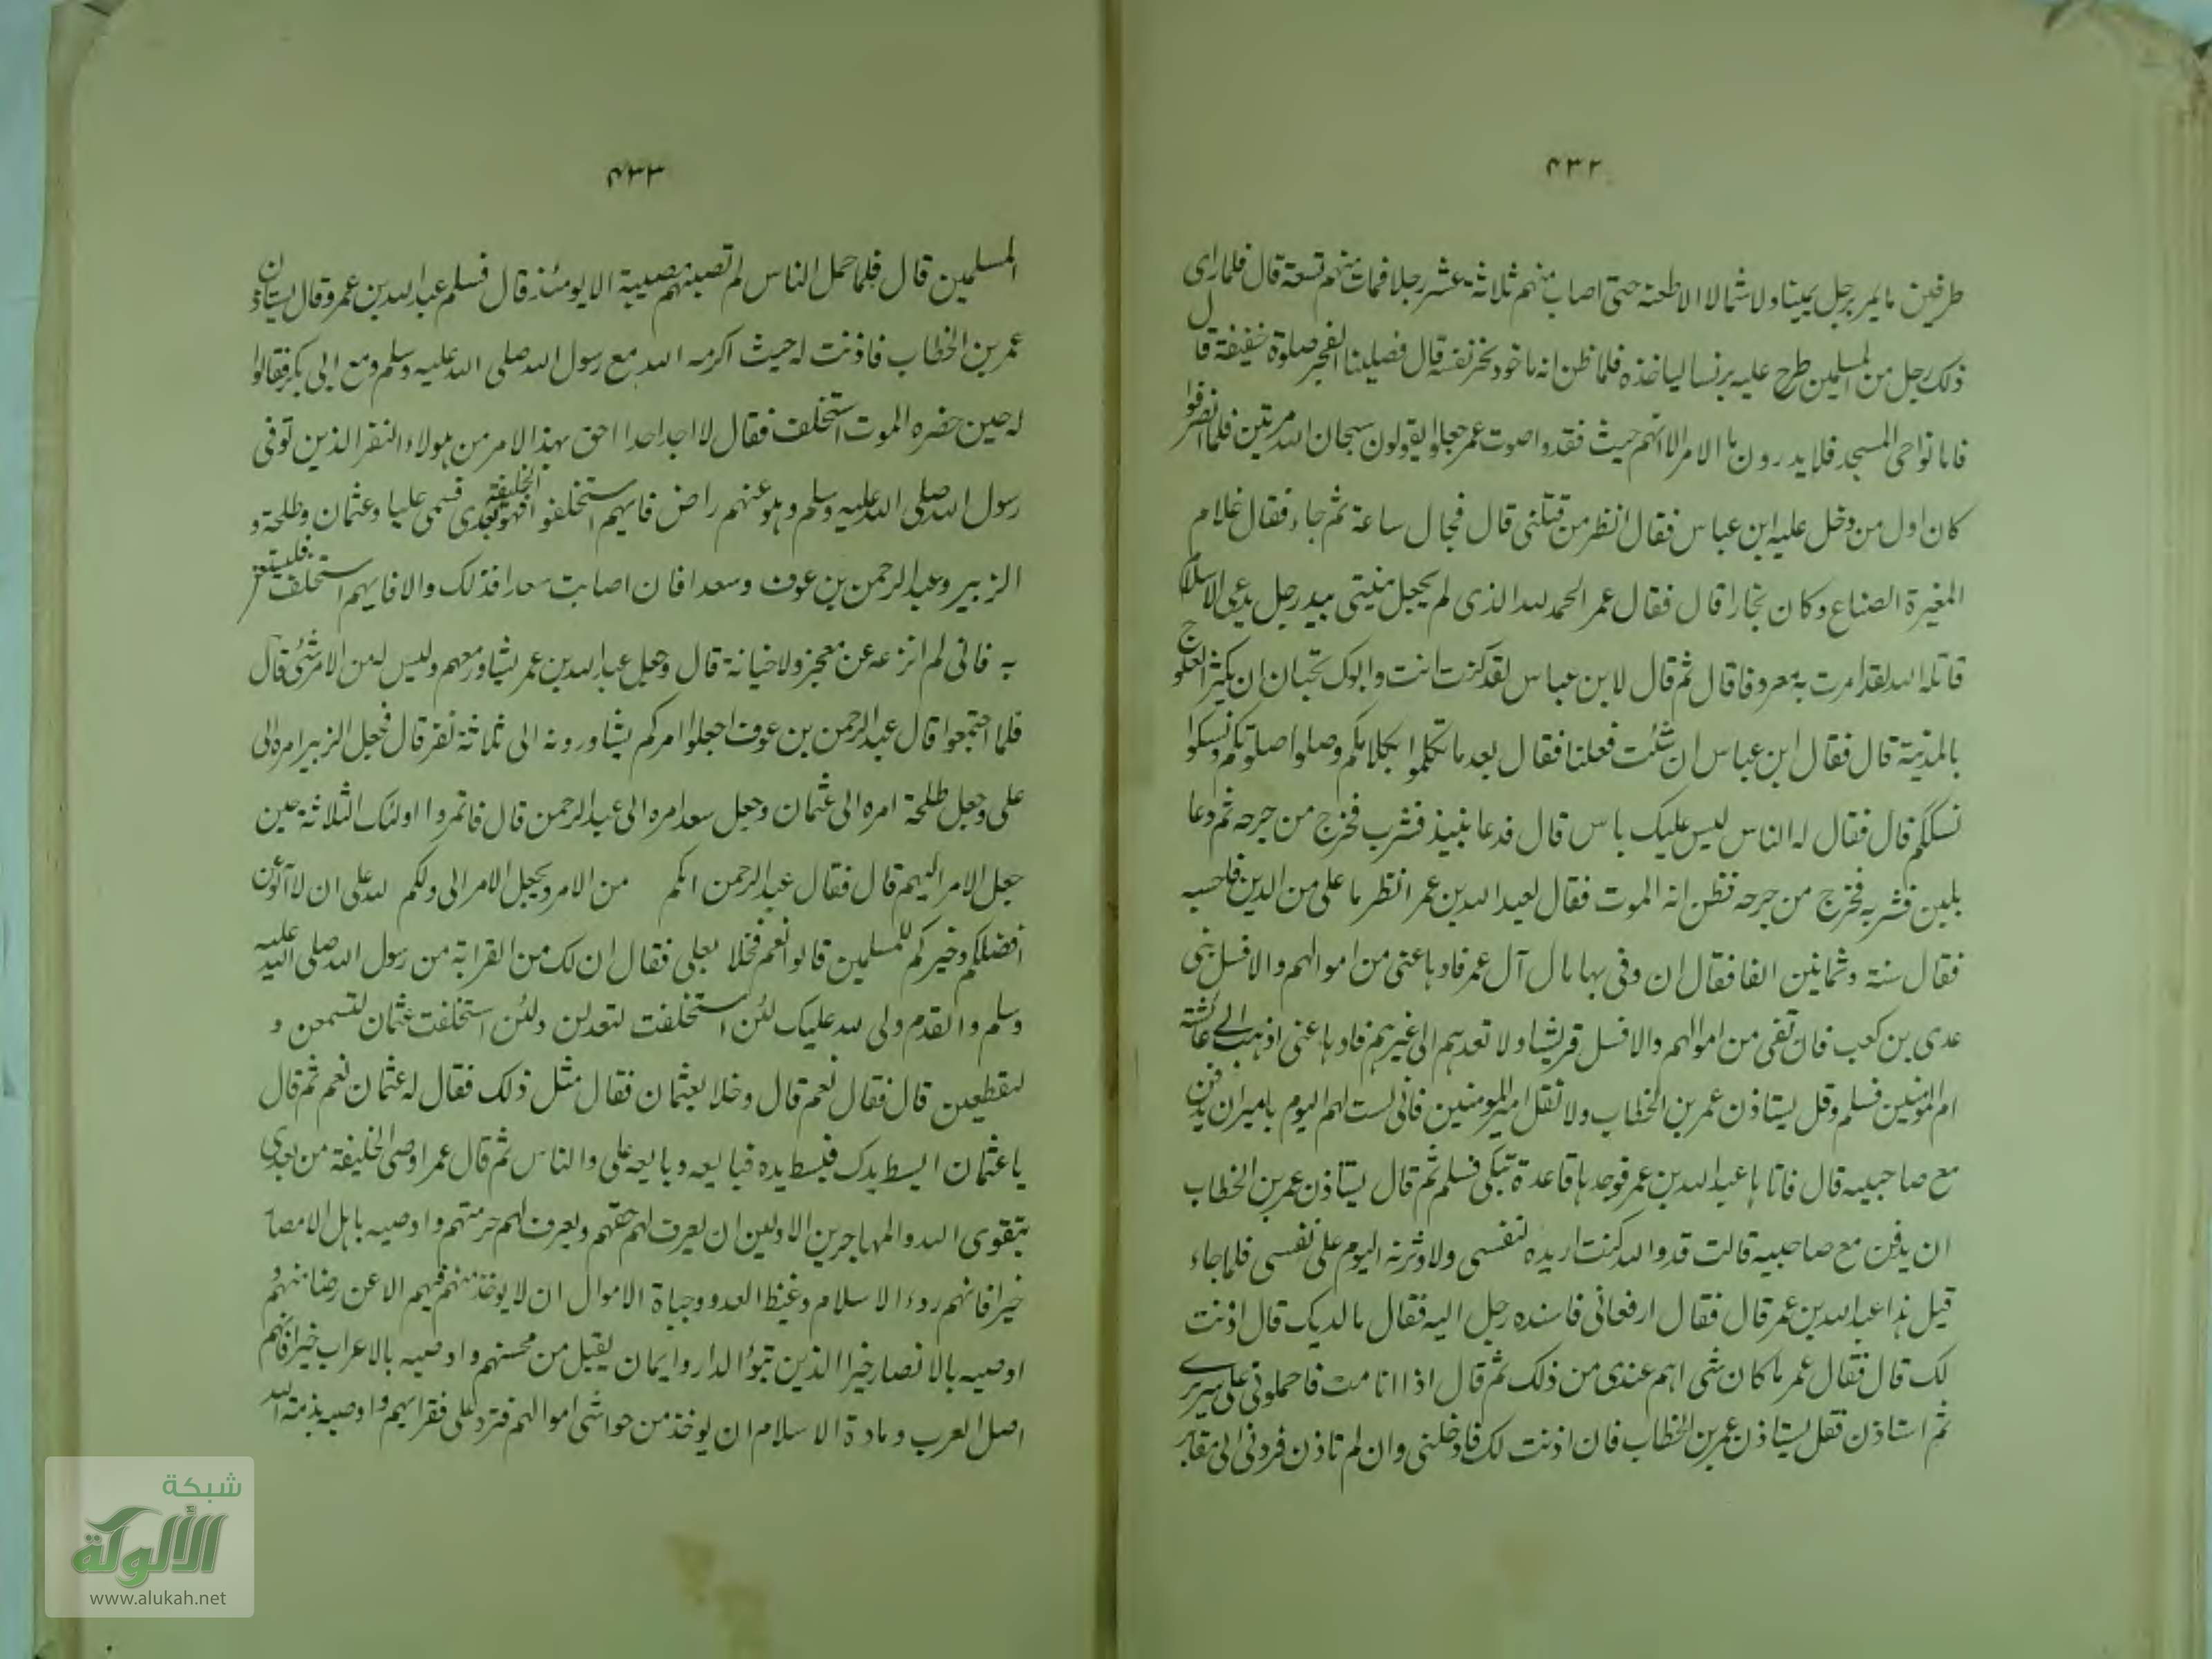 ۴۳۲
طرفين ما يمر برجل يمينا ولا شمالا الا طعنه حتى اصاب منهم ثلاثة عشر رجلا فمات منهم تسعة قال فلما راى
ذلك رجل من المسلمين طرح عليه برنسا لياخذه فلما ظن انه ماخوذ نحر نفسه قال فصلينا الفجر صلوة خفيفة قال
فاما نواحى المسجد فلا يدرون ما الامر الا انهم حيث فقدوا صوت عمر جعلوا يقولون سبحان الله مرتين فلما انصرفوا
كان اول من دخل عليه ابن عباس فقال انظر من قتلنى قال فجال ساعة ثم جاء فقال غلام
المغيرة الصناع وكان نجارا قال فقال عمر الحمد لله الذى لم يجعل منيتى بيد رجل يدعى الاسلام
قاتله الله لقد امرت به معروفا قال ثم قال لابن عباس لقد كنت انت وابوك تحبان ان يكثر العلوج
بالمدينة قال فقال ابن عباس ان شئت فعلنا فقال بعد ما تكلموا بكلامكم وصلوا صلوتكم ونسكوا
نسككم قال فقال له الناس ليس عليك باس قال فدعا بنبيذ فشرب فخرج من جرحه ثم دعا
بلبن فشربه فخرج من جرحه فظن انه الموت فقال لعبد الله بن عمر انظر ما على من الدين فاحسبه
فقال ستة وثمانين الفا فقال ان وفى بها مال آل عمر فادها عنى من اموالهم والا فسل بنى
عدى بن كعب فان تفى من اموالهم والا فسل قريشا ولا تعدهم الى غيرهم فادها عنى اذهب الى عائشة
ام المؤمنين فسلم وقل يستاذن عمر بن الخطاب ولا تقل امير المومنين فانى لست لهم اليوم بامير ان يدفن
مع صاحبيه قال فاتاها عبد الله بن عمر فوجدها قاعدة تبكى فسلم ثم قال يستاذن عمر بن الخطاب
ان يدفن مع صاحبيه قالت قد والله كنت اريده لنفسى ولاوثرنه اليوم على نفسى فلما جاء
قيل هذا عبد الله بن عمر قال فقال ارفعانى فاسنده رجل اليه فقال ما لديك قال اذنت
لك قال فقال عمر ما كان شى اهم عندى من ذلك ثم قال اذا انا مت فاحملونى على سريرى
ثم استاذن فقل يستاذن عمر بن الخطاب فان اذنت لك فادخلنى وان لم تاذن فردنى الى مقابر
۴۳۳
المسلمين قال فلما حمل الناس لم تصبهم مصيبة الا يومئذ قال فسلم عبد الله بن عمر وقال يستاذن
عمر بن الخطاب فاذنت له حيث اكرمه الله مع رسول الله صلى الله عليه وسلم ومع ابى بكر فقالوا
له حين حضره الموت استخلف فقال لا اجد احدا احق بهذا الامر من هولاء النفر الذين توفى
رسول الله صلى الله عليه وسلم وهو عنهم راض فايهم استخلفوا فهو الخليفة بعدى فسمى عليا وعثمان وطلحة و
الزبير وعبد الرحمن بن عوف وسعدا فان اصابت سعدا فذلك والا فايهم استخلف فليستعن
به فانى لم انزعه عن معجز ولا خيانة قال وجعل عبد الله بن عمر يشاور معهم وليس له من الامر شئ قال
فلما اجتمعوا قال عبد الرحمن بن عوف اجعلوا امركم يشاورونه الى ثلاثة نفر قال فجعل الزبير امره الى
على وجعل طلحة امره الى عثمان وجعل سعد امره الى عبد الرحمن قال فاتمروا اولئك الثلاثة حين
جعل الامر اليهم قال فقال عبد الرحمن انكم من الامر ويجعل الامر الى ولكم لله على ان لا آلون
افضلكم وخيركم للمسلمين قالوا نعم فخلا بعلى فقال ان لك من القرابة من رسول الله صلى الله عليه
وسلم والقدم ولى لله عليك لئن استخلفت لتعدلن ولئن استخلفت عثمان لتسمعن و
لتقطعين قال فقال نعم قال وخلا بعثمان فقال مثل ذلك فقال له عثمان نعم ثم قال
يا عثمان ابسط يدك فبسط يده فبايعه وبايعه على والناس ثم قال عمر اوصى الخليفة من بعدى
بتقوى الله والمهاجرين الاولين ان يعرف لهم حقهم ويعرف لهم حرمتهم واوصيه باهل الامصار
خيرا فانهم ردء الاسلام وغيظ العدو وجباة الاموال ان لا يوخذ منهم فيهم الا عن رضا منهم و
اوصيه بالانصار خيرا الذين تبوؤ الدار وايمان يقبل من محسنهم واوصيه بالاعراب خيرا فانهم
اصل العرب ومادة الاسلام ان يوخذ من حواشى اموالهم فترد على فقرايهم واوصيه بذمة الله
شبكة
الألوكة
www.alukah.net